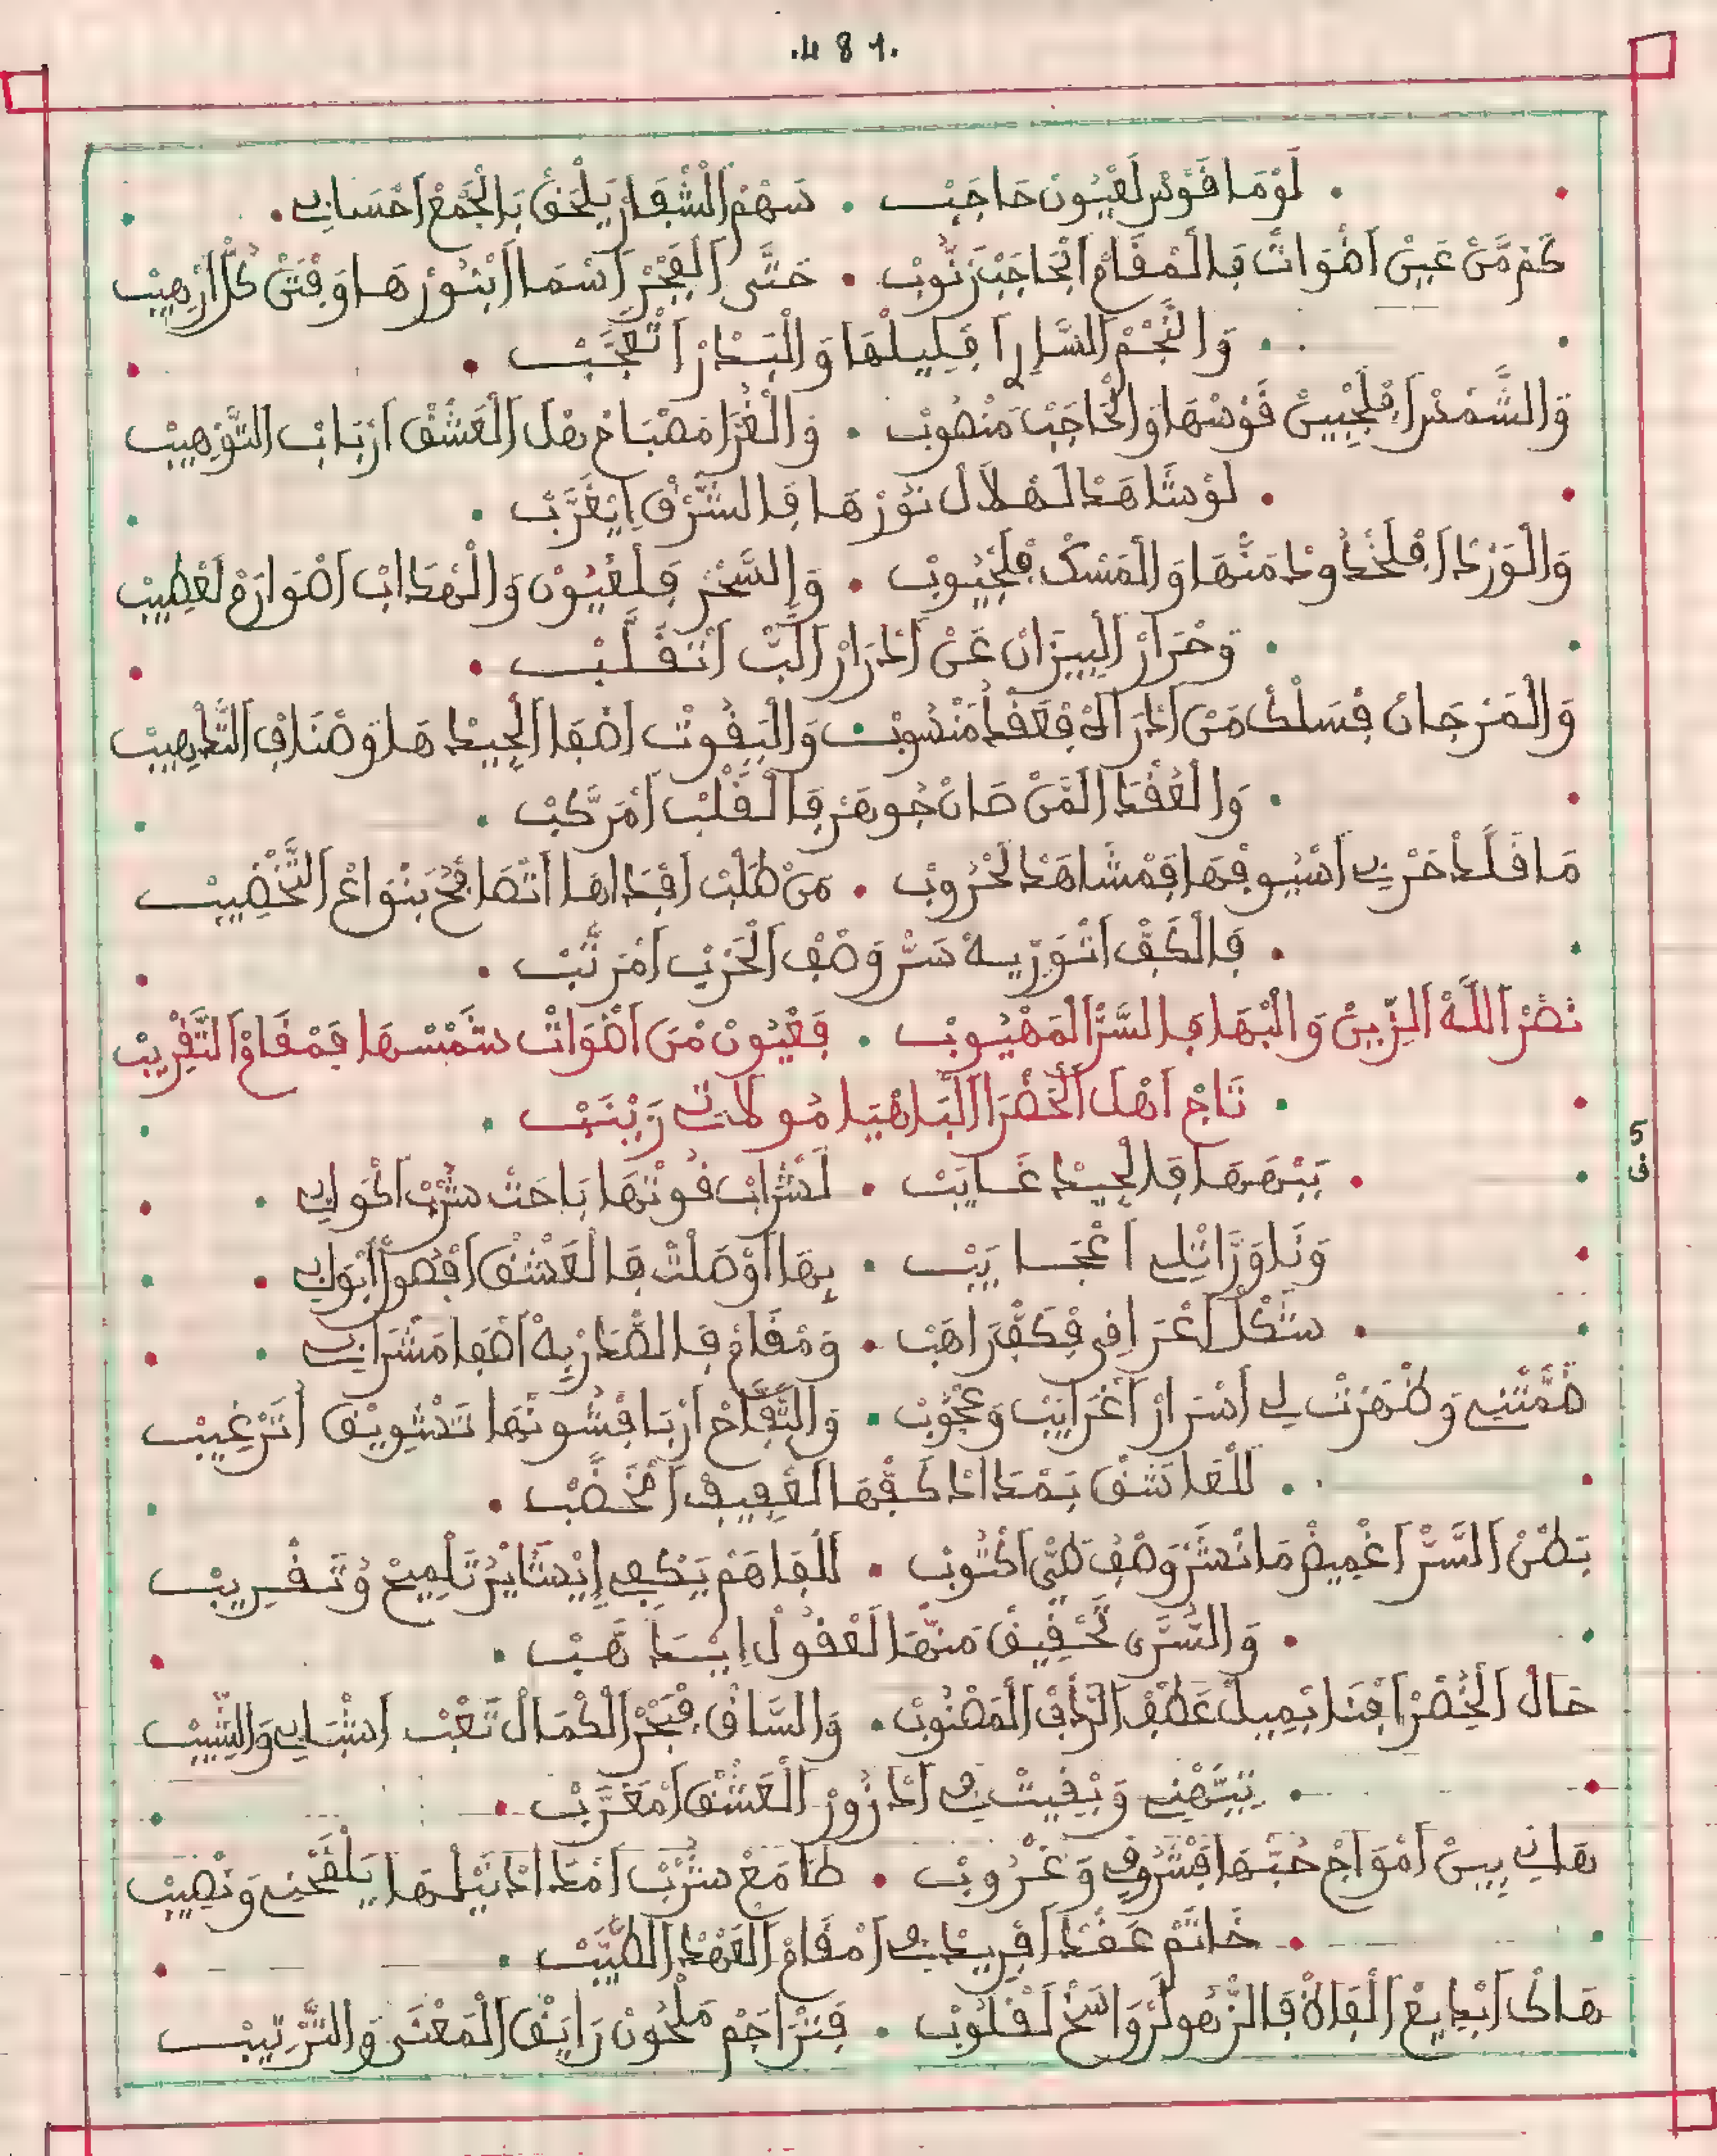 .481.
لَوْمَا قَوْسْ لَعْيُونْ حَاجَبْ . سَهْمْ اَلْشْفَارْ يَلْحَقْ بَالْجَمْعْ اَحْسَابِي .
كَمْ مَنْ عَيْنْ اَضْوَاتْ فَالْمْقَامْ اَلْحَاجَبْ زَنُّوبْ . حَتَّى اَلْفَجْرْ اَسْمَا اَبْنُورْهَا وَقْتَنْ كُلْ اَرْهِيبْ
. وَالنَّجْمْ السَّارِ اَقْلِيلْهَا وَالْبَدْرْ اَتْعَجَّبْ .
وَالشَّمْسْ اَفْلَجْبِينْ قَوْسْهَا وَالْحَاجَبْ مَنْصُوبْ . وَالْغُرَّا مَصْبَاحْ هْلْ اَلْعَشْقْ اَرْبَابْ التَّوْهِيبْ
. لَوْ شَاهَدْ الهْلَالْ نُورْهَا فَالشَّرْقْ اِيْغَرَّبْ .
وَالْوَرْدْ اَفْلَخْدُودْ مَنْهَا وَالْمَسْكْ فْلَجْيُوبْ . وَالسَّحْرْ فَلْعْيُونْ وَالْهْدَابْ اَصْوَارَمْ لَعْطِيبْ
. وَحْرَارْ اَلْبِيزَانْ عَنْ اَدْرَارْ اَلْبَّ اَتْقَلَّبْ .
وَالْمَرْجَانْ فْسَلْكْ مَنْ اَدْرَ اَلِّ فْعَقْدْ مَنْسُوبْ . وَالْيَقُوتْ اَصْفَا اَلْجِيدْ هَا وَصْنَافْ التَّدْهِيبْ
. وَالْعَقْدْ الْمَنْ صَانْ جُوهَرْ فَالْقَلْبْ اَمْرَكَّبْ .
مَا قَلَّدْ حَرْبِي اَسْيُوفْهَا فَمْشَاهَدْ لَحْرُوبْ . مَنْ طْلَبْ اَفْدَاهَا اَتْصَافْحْ بَنْوَاعْ اَلتَّخْضِيبْ
. فَالْكَفْ اَتْوَرِّيهْ سَرّْ وَصْفْ اَلْحَرْبْ اَمْرَتَّبْ .
نَصْرْ اَللَّهْ اَلزِّينْ وَالْبْهَا فَالسَّرّْ اَلْمَهْيُوبْ . فَعْيُونْ مْنْ اَضْوَاتْ شَمْسْهَا فَمْقَامْ اَلتَّقْرِيبْ
. تَاجْ اَهْلْ اَلْحَضْرَا اَلْبَاهْيَا مُولَاتِي زَيْنَبْ .
5
ق
. بَبْهَهَا فَالْجِيدْ غَايَبْ . لَشْرَابْ قُوتْهَا بَاحَتْ شُرْبْ اَكْوَابِي .
وَنَاوَزَّانْلِي اَعْجَايَبْ . بِهَا اَوْصَلْتْ فَالْعَشْقْ اَقْصُورْ اَبْوَابِي .
. شَكْلْ اَعْرَاقِي فْكَفّْ رَاهَبْ . وَمْقَامْ فَالصَّدْرْ بِهْ اَصْفَا مَشْرَابِي .
ضَمَّتْنِي وَظْهَرْتْ لِي اَسْرَارْ اَغْرَايَبْ وَعْجُوبْ . وَالتُّفَّاحْ اَرْبَا فْشُونْهَا تَشْوِيقْ اَتَرْغِيبْ
. لَلْعَاشَقْ بَمْدَادْ كَفّْهَا الْعْفِيفْ اَمْخَضَّبْ .
بَطْنْ اَلسَّرّْ اَغْمِيضْ مَانْشَرْ وَصْفْ طَيّْ اَكْتُوبْ . لَلْفَاهَمْ يَكْفِي اِيْشَايَرْ تَلْمِيحْ وْتَقْرِيبْ
. وَالسُّرَّى تَحْقِيقْ مَنْهَا لَعْقُولْ اِيْدَّهَبْ .
حَالْ اَلْخْصَرْ اَفْنَا يْمِيلْ عَطْفْ اَلرَّدْفْ اَلْمَصْنُوبْ . وَالسَّاقْ فْبَحْرْ اَلْكْمَالْ تَعْبْ اَشْبَابِي وَالشِّيبْ
. تَيَّهْنِي وَبْقِيتْ فِي اَدْرُورْ اَلْعَشْقْ اَمْغَرَّبْ .
هَانِي بِينْ اَمْوَاجْ حُبّْهَا فَشْرُوقْ وَغْرُوبْ . طَامَعْ شُرْبْ اَمْدَادْ نَيْلْهَا يَلْقَحْنِي وَنْصِيبْ
. خَاتَمْ عَقْدْ اَفْرِيدْ فِي اَمْقَامْ اَلْعَهْدْ الطَّيَّبْ .
هَاكْ اَبْدِيعْ اَلْفَاظْ فَالزّْهُو لَرْوَاسَخْ لَقْلُوبْ . فَتْرَاجَمْ مَلْحُونْ رَايَقْ اَلْمَعْنَى وَالتَّرْتِيبْ